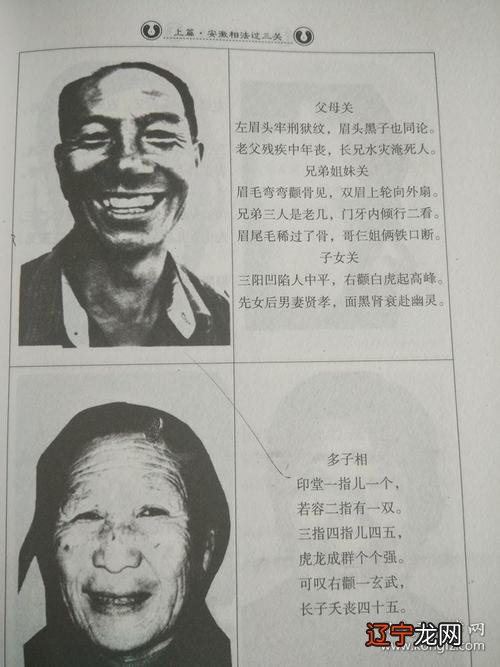 上篇·安激相法过三关
父母关
左眉头牢刑狱纹，眉头黑子也同论。
老父残疾中年丧，长兄水灾淹死人。
兄弟姐妹关
眉毛弯弯颧骨见，双眉上轮向外扇。
兄弟三人是老几，门牙内倾行二看。
眉尾毛稀过了骨，哥仨姐俩铁口断。
子女关
三阳凹陷人中平，右颧白虎起高峰。
先女后男妻贤孝，面黑肾衰赴幽灵。
多子相
印堂一指儿一个，
若容二指有一双。
三指四指儿四五，
虎龙成群个个强。
可叹右颧一玄武，
长子夭丧四十五。
辽宁龙网